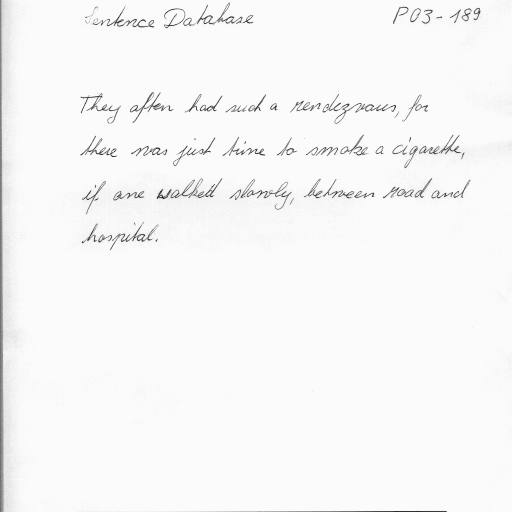 Sentence Database P03-189
They often had such a rendezvous, for
there was just time to smoke a cigarette,
if one walked slowly, between road and
hospital.